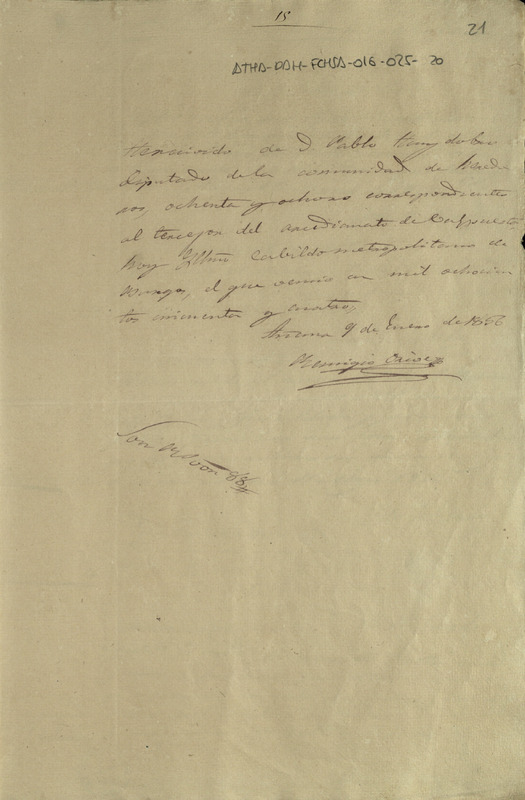 15
21
ATHA-DAH-FCHSA-016-025-20
He recivido de D. Pablo
diputado de la comunidad de herede
ros, ochenta y ocho rs correspondientes
al tercejor del arcedianato de
hoy Ylltmo Cabildo metropolitano de
Burgos, el que vencio en mil ochocien
tos cincuenta y cuatro,
9 de Enero de 1856
Remigio
Son Rs von 88